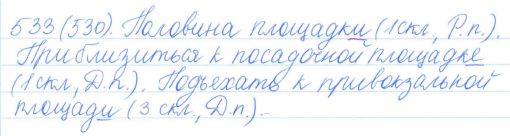 533 (530). Половина площадки (1скл, Р.п.).
Приблизиться к посадочной площадке
(1скл, Д.п.). Подъехать к привокзальной
площади (3 скл, Д.п.).